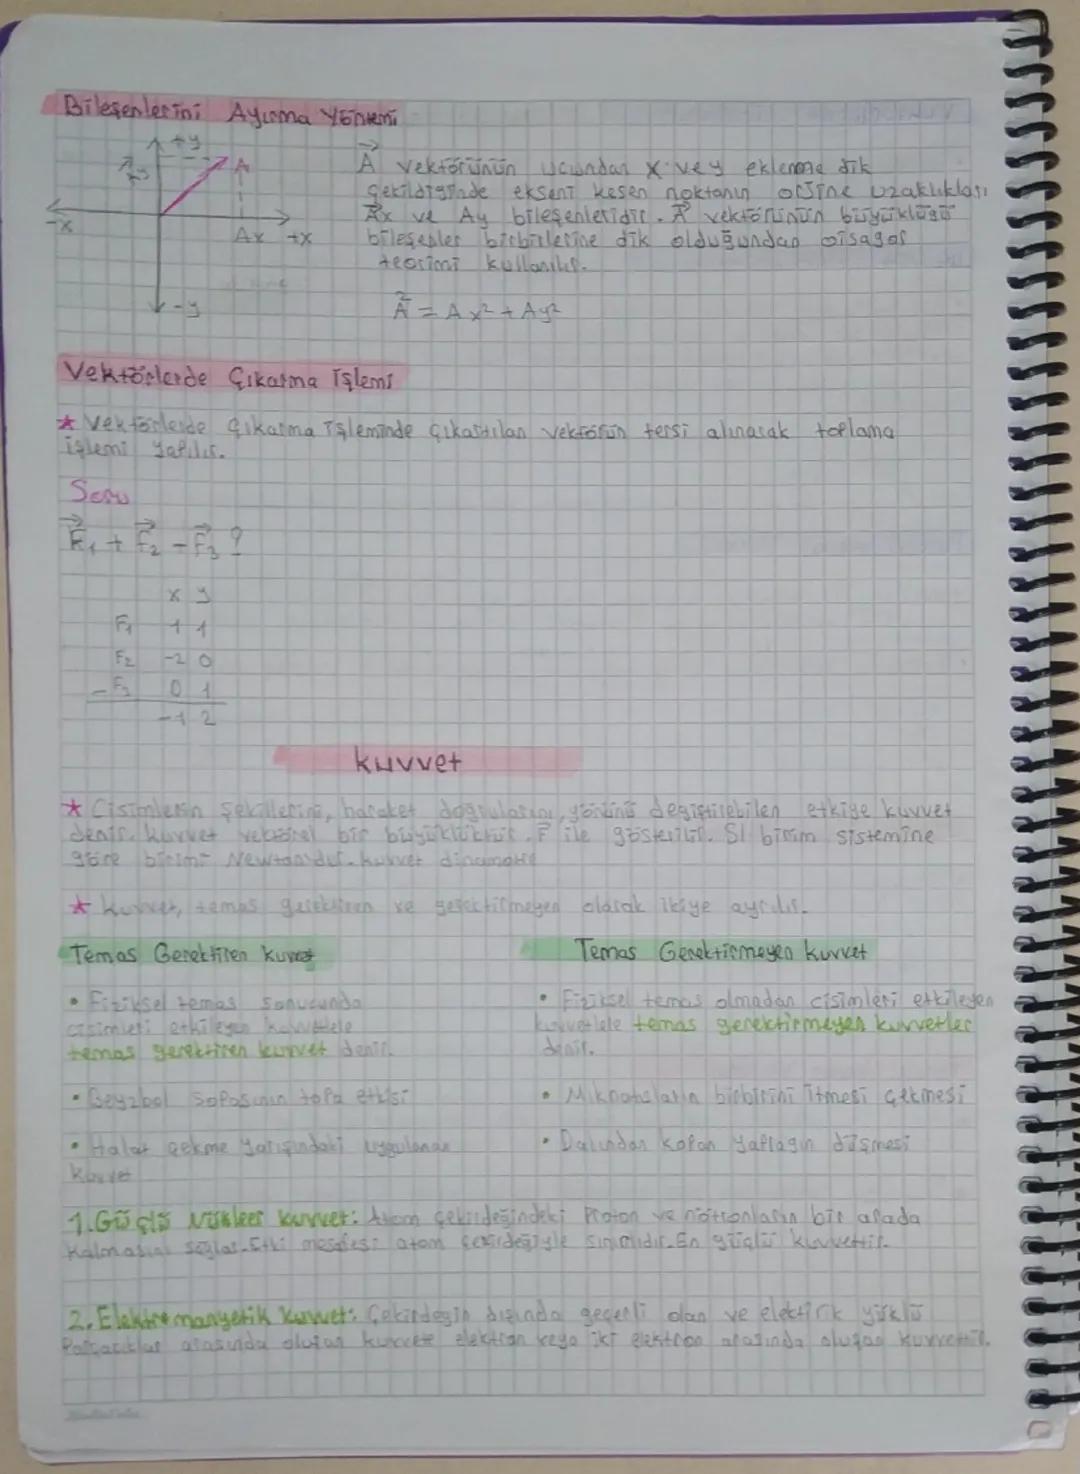 Bileşenlerini Ayırma Yöntemi
+y
Ay
A
-x
Ax +x
-y
A vektörünün ucundan x vey eklenone dik
çekildiğinde ekseni kesen noktanın orjine uzaklıkları
Ax ve Ay bileşenleridir. A vektörünün büyüklüğü
bileşenler birbirlerine dik olduğundan pisagor
teorimi kullanılır.
A = Ax² + Ay²
Vektörlerde Çıkarma İşlemi
★ Vektörlerde çıkarma işleminde çıkartılan vektörün tersi alınarak toplama
işlemi yapılır.
Soru
F₁ + F₂ - F₃ ?
x y
F₁ +1 1
F₂ -2 0
-F₃ 0 1
-1 2
kuvvet
★ Cisimlerin şekillerini, haraket doğrularını, yönünü değiştirebilen etkiye kuvvet
denir. kuvvet vektörel bir büyüklüktür. F ile gösterilir. SI birim sistemine
göre birimi Newtondur. kuvvet
★ kuvvet, temas gerektiren ve gerektirmeyen olarak ikiye ayrılır.
Temas Gerektiren kuvvet
• Fiziksel temas sonucunda
cisimleri etkileyen
temas gerektiren kuvvet denir.
• Beyzbol sopasının topa etkisi
• Halat çekme yarışındaki uygulanan
kuvvet
Temas Gerektirmeyen kuvvet
• Fiziksel temas olmadan cisimleri etkileyen
kuvvetlele temas gerektirmeyen kuvvetler
denir.
• Mıknatısların birbirini itmesi çekmesi
• Dalından kopan yaprağın düşmesi
1. Güçlü Nükleer kuvvet: Atom çekirdeğindeki Proton ve nötronların bir arada
kalmasını sağlar. Etki mesafesi atom çekirdeğiyle sınırlıdır. En güçlü kuvvettir.
2. Elektromanyetik kuvvet: Çekirdeğin dışında geçerli olan ve elektirik yüklü
Parçacıklar arasında oluşan kuvvete elektron veya iki elektron arasında oluşan kuvvettir.